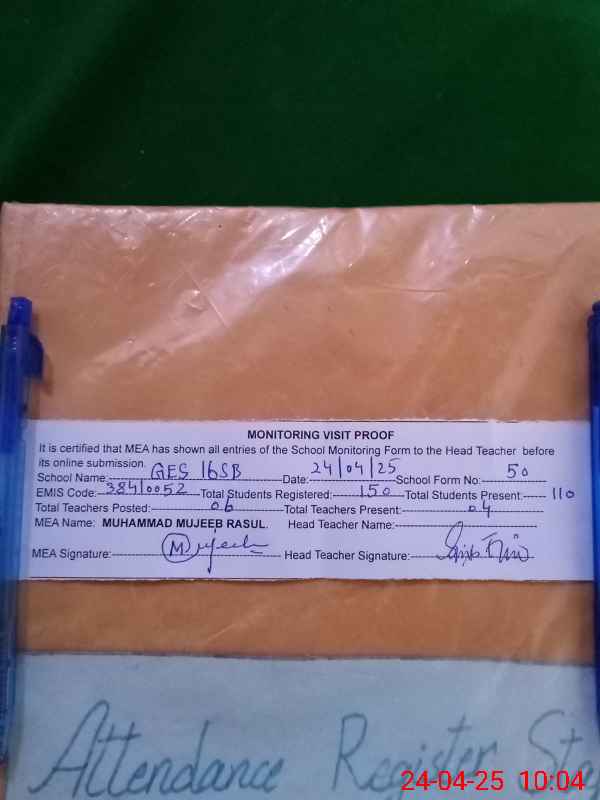 MONITORING VISIT PROOF
It is certified that MEA has shown all entries of the School Monitoring Form to the Head Teacher before
its online submission.
School Name: GES 16SB Date: 24/04/25 School Form No: 50
EMIS Code: 38410052 Total Students Registered: 150 Total Students Present: 110
Total Teachers Posted: 06 Total Teachers Present: 04
MEA Name: MUHAMMAD MUJEEB RASUL. Head Teacher Name:
MEA Signature: Mujeeb Head Teacher Signature:
Attendance Register
24-04-25 10:04